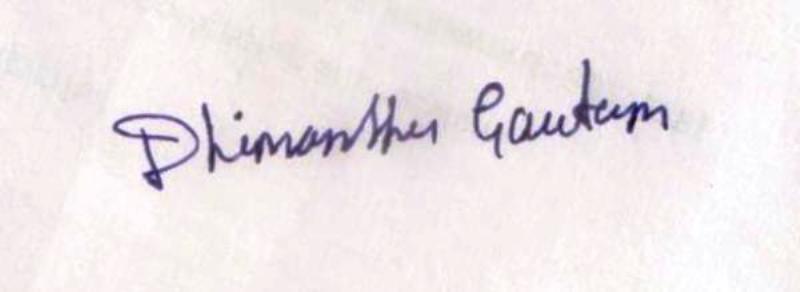 Dhimanthu Gautam